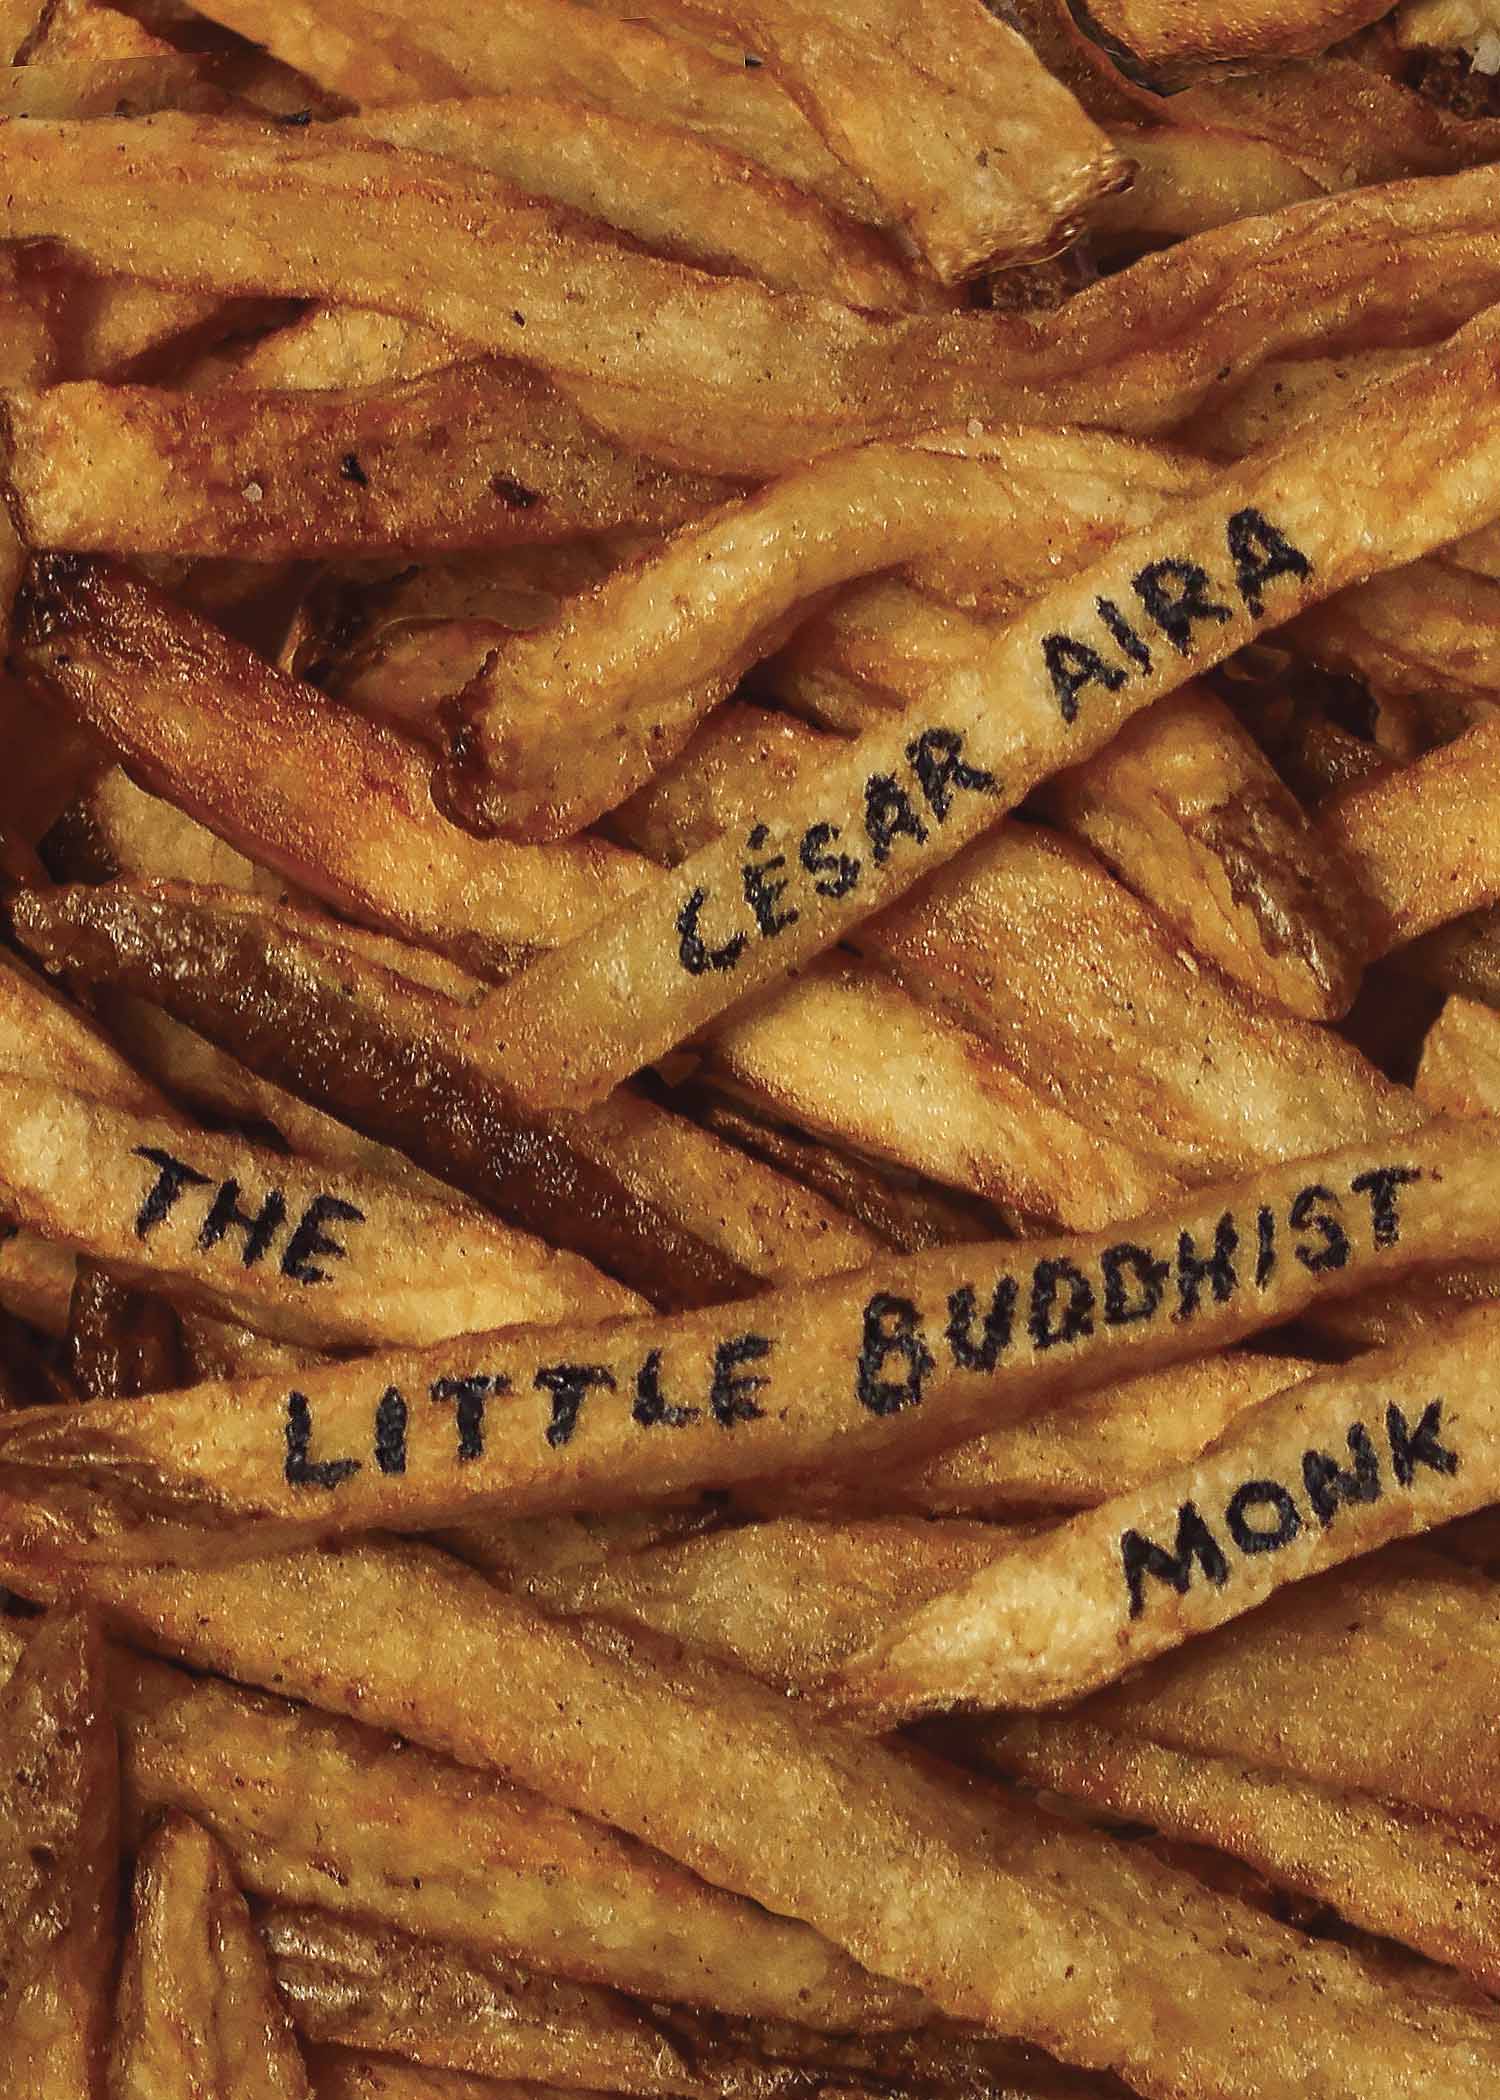 CÉSAR AIRA
THE
LITTLE BUDDHIST
MONK